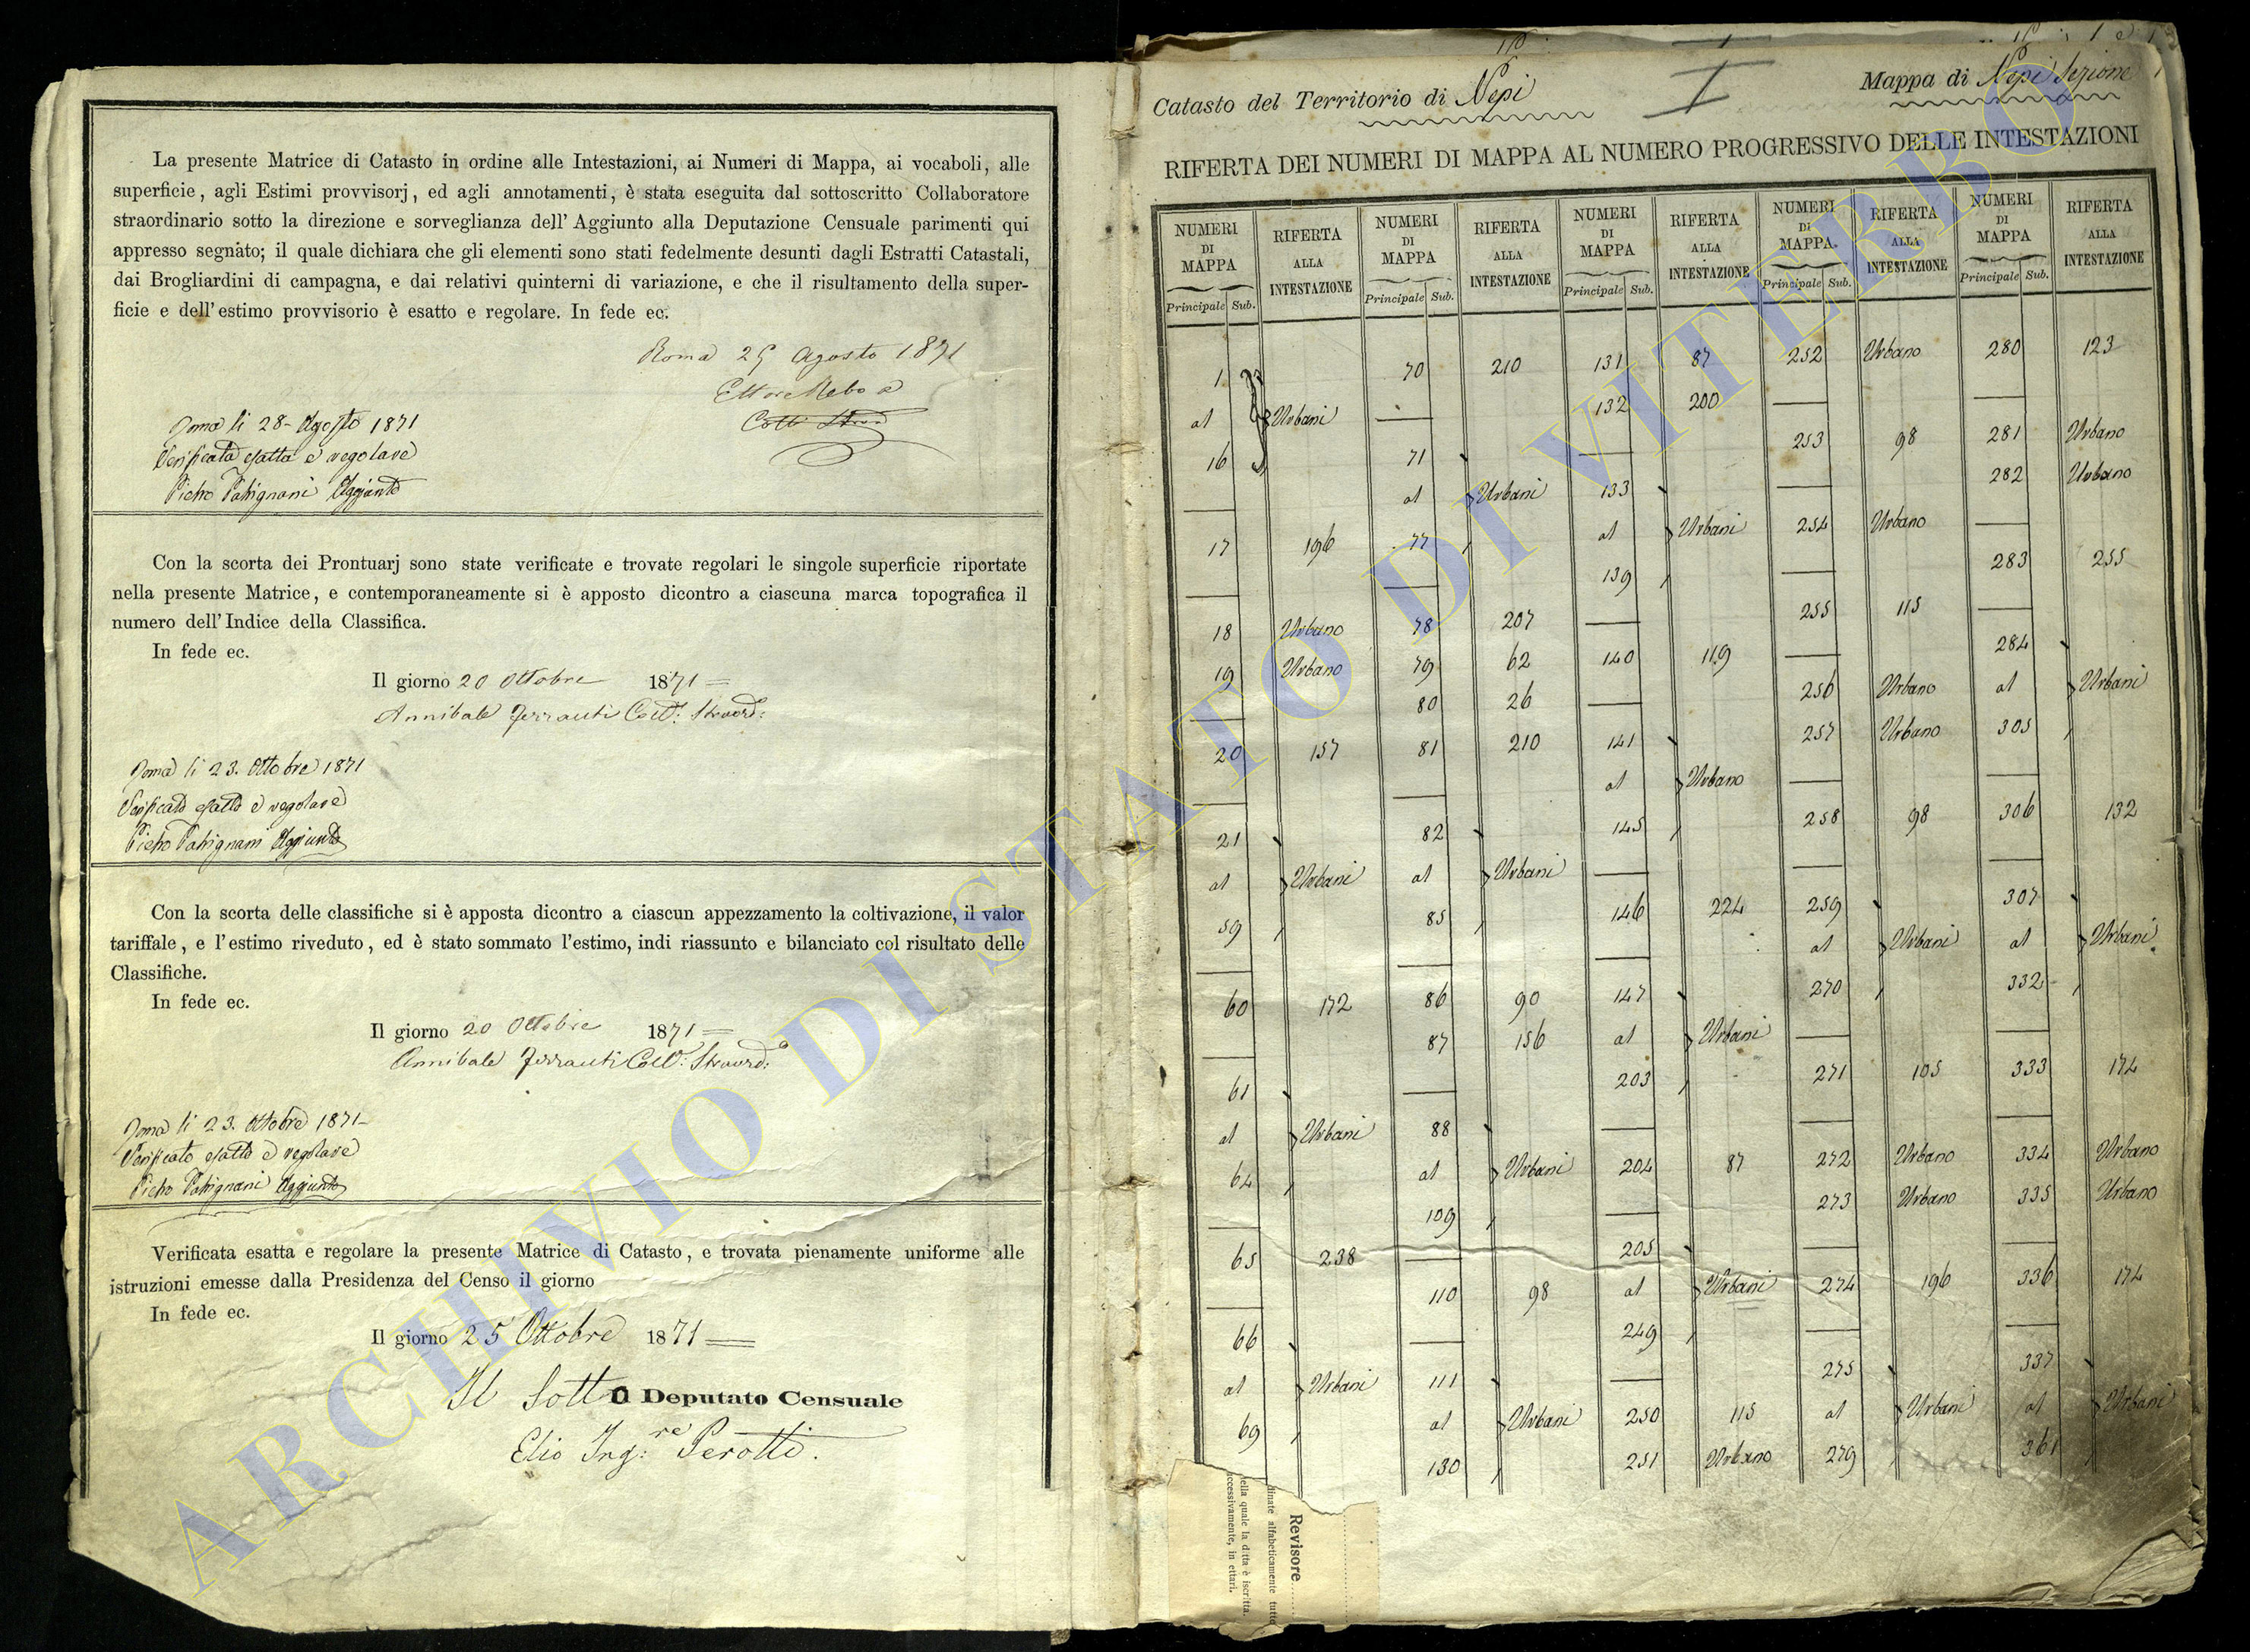 La presente Matrice di Catasto in ordine alle Intestazioni, ai Numeri di Mappa, ai vocaboli, alle
superficie, agli Estimi provvisorj, ed agli annotamenti, è stata eseguita dal sottoscritto Collaboratore
straordinario sotto la direzione e sorveglianza dell' Aggiunto alla Deputazione Censuale parimenti qui
appresso segnato; il quale dichiara che gli elementi sono stati fedelmente desunti dagli Estratti Catastali,
dai Brogliardini di campagna, e dai relativi quinterni di variazione, e che il risultamento della super-
ficie e dell' estimo provvisorio è esatto e regolare. In fede ec.
Roma 25 Agosto 1871
Ettore
Roma li 28- Agosto 1871
Verificata esatta e regolare
Pietro Patrignani Aggiunto
Con la scorta dei Prontuarj sono state verificate e trovate regolari le singole superficie riportate
nella presente Matrice, e contemporaneamente si è apposto dicontro a ciascuna marca topografica il
numero dell' Indice della Classifica.
In fede ec.
Il giorno 20 Ottobre 1871
Annibale Ferrauti Coll: Straord:
Roma li 23. Ottobre 1871
Verificato esatto e regolare
Pietro Patrignani Aggiunto
Con la scorta delle classifiche si è apposta dicontro a ciascun appezzamento la coltivazione, il valor
tariffale, e l'estimo riveduto, ed è stato sommato l'estimo, indi riassunto e bilanciato col risultato delle
Classifiche.
In fede ec.
Il giorno 20 Ottobre 1871
Annibale Ferrauti Coll: Straord:
Roma li 23. Ottobre 1871-
Verificato esatto e regolare
Pietro Patrignani Aggiunto
Verificata esatta e regolare la presente Matrice di Catasto, e trovata pienamente uniforme alle
istruzioni emesse dalla Presidenza del Censo il giorno
In fede ec.
Il giorno 25 Ottobre 1871
Il Sotto Deputato Censuale
Elio Ing:re Perotti.
Catasto del Territorio di Nepi
I
Mappa di Nepi Sezione 1
RIFERTA DEI NUMERI DI MAPPA AL NUMERO PROGRESSIVO DELLE INTESTAZIONI
NUMERI DI MAPPA Principale Sub. RIFERTA ALLA INTESTAZIONE
1
al Urbani
16
17 196
18 Urbano
19 Urbano
20 157
21
al Urbani
59
60 172
61
al Urbani
64
65 238
66
al Urbani
69
NUMERI DI MAPPA Principale Sub. RIFERTA ALLA INTESTAZIONE
70 210
71
al Urbani
77
78 207
79 62
80 26
81 210
82
al Urbani
85
86 90
87 156
88
al Urbani
109
110 98
111
al Urbani
130
NUMERI DI MAPPA Principale Sub. RIFERTA ALLA INTESTAZIONE
131 87
132 200
133
al Urbani
139
140 119
141
al Urbano
145
146 224
147
al Urbani
203
204 87
205
al Urbani
249
250 115
251 Urbano
NUMERI DI MAPPA Principale Sub. RIFERTA ALLA INTESTAZIONE
252 Urbano
253 98
254 Urbano
255 115
256 Urbano
257 Urbano
258 98
259
al Urbani
270
271 105
272 Urbano
273 Urbano
274 196
275
al Urbani
279
NUMERI DI MAPPA Principale Sub. RIFERTA ALLA INTESTAZIONE
280 123
281 Urbano
282 Urbano
283 255
284
al Urbani
305
306 132
307
al Urbani
332
333 174
334 Urbano
335 Urbano
336 174
337
al Urbani
361
Revisore
dinate alfabeticamente tutte
ella quale la ditta è iscritta.
ccessivamente, in ettari.
ARCHIVIO DI STATO DI VITERBO